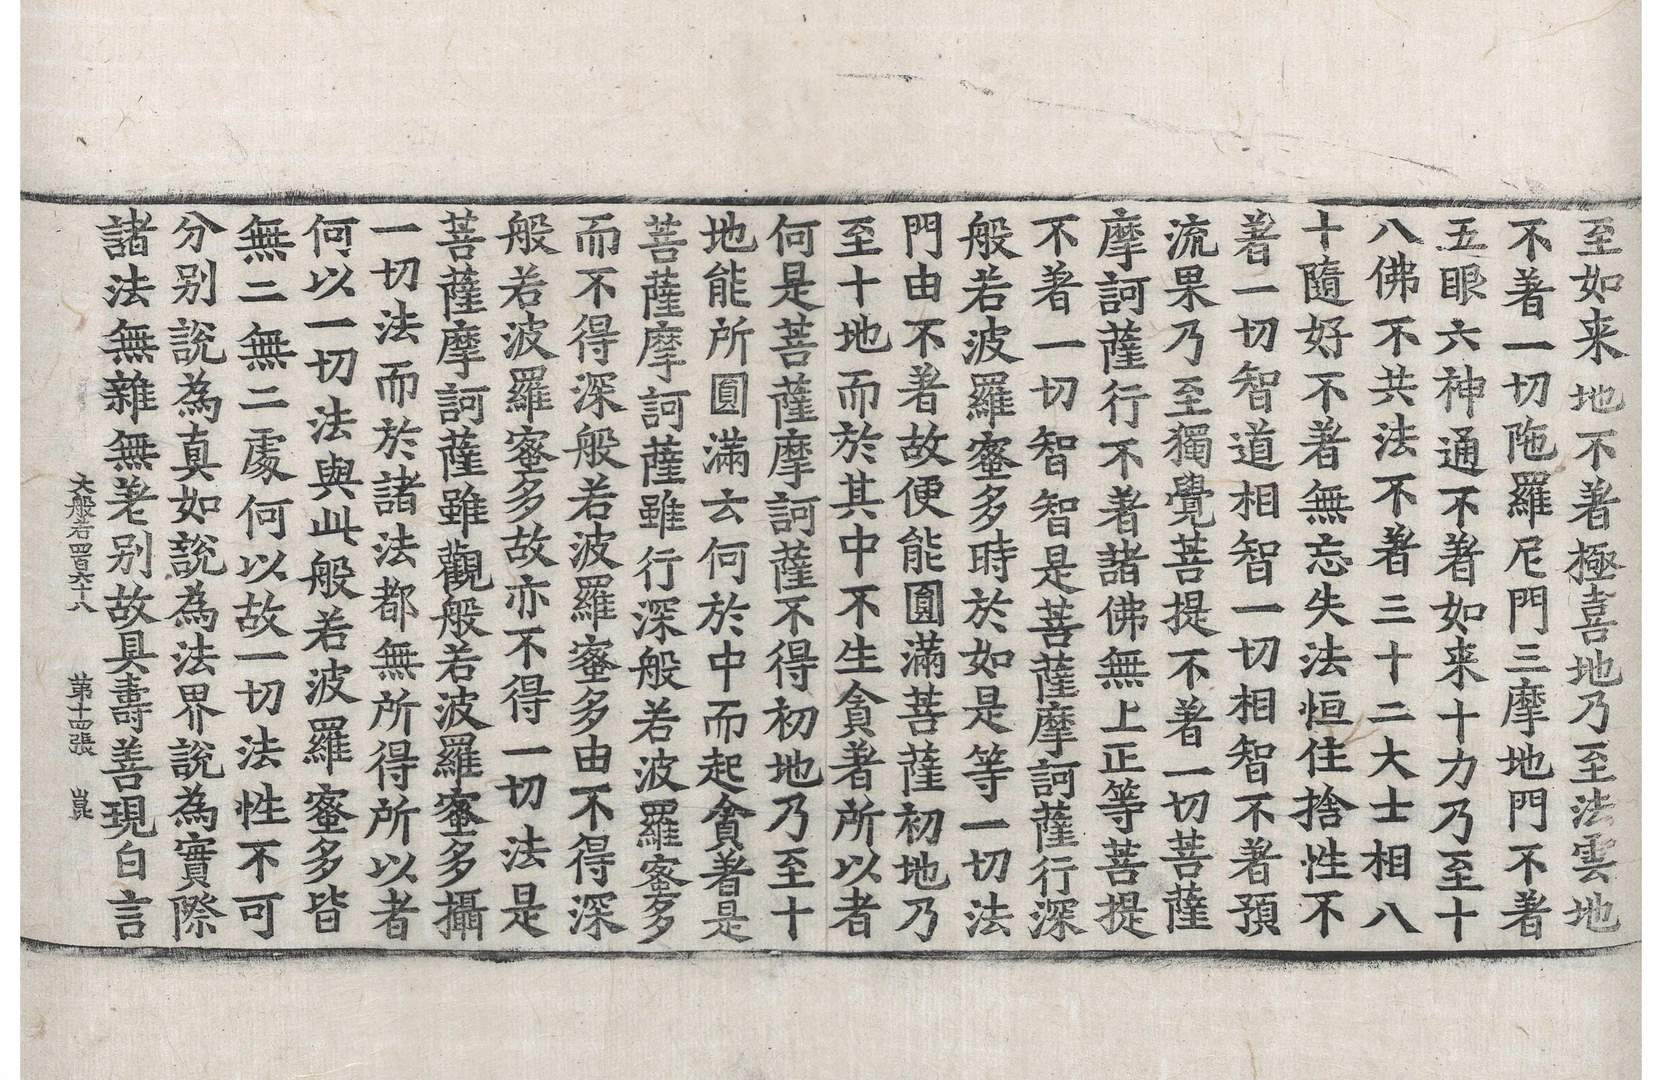 至如来地不著極喜地乃至法雲地
不著一切陁羅尼門三摩地門不著
五眼六神通不著如来十力乃至十
八佛不共法不著三十二大士相八
十隨好不著無忘失法恒住捨性不
著一切智道相智一切相智不著預
流果乃至獨覺菩提不著一切菩薩
摩訶薩行不著諸佛無上正等菩提
不著一切智智是菩薩摩訶薩行深
般若波羅蜜多時於如是等一切法
門由不著故便能圓滿菩薩初地乃
至十地而於其中不生貪著所以者
何是菩薩摩訶薩不得初地乃至十
地能所圓滿云何於中而起貪著是
菩薩摩訶薩雖行深般若波羅蜜多
而不得深般若波羅蜜多由不得深
般若波羅蜜多故亦不得一切法是
菩薩摩訶薩雖觀般若波羅蜜多攝
一切法而於諸法都無所得所以者
何以一切法與此般若波羅蜜多皆
無二無二處何以故一切法性不可
分别說為真如說為法界說為實際
諸法無雜無老别故具壽善現白言
大般若四百六十八 第十四張 崑